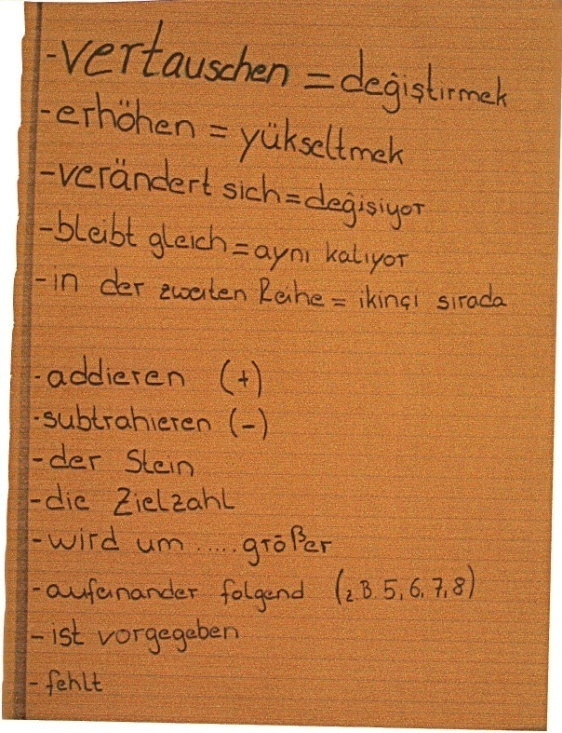 -vertauschen = değiştirmek
-erhöhen = yükseltmek
-verändert sich = değişiyor
-bleibt gleich = aynı kalıyor
-in der zweiten Reihe = ikinçi sırada
-addieren (+)
-subtrahieren (-)
-der Stein
-die Zielzahl
-wird um ..... größer
-aufeinander folgend (z.B. 5, 6, 7, 8)
-ist vorgegeben
-fehlt